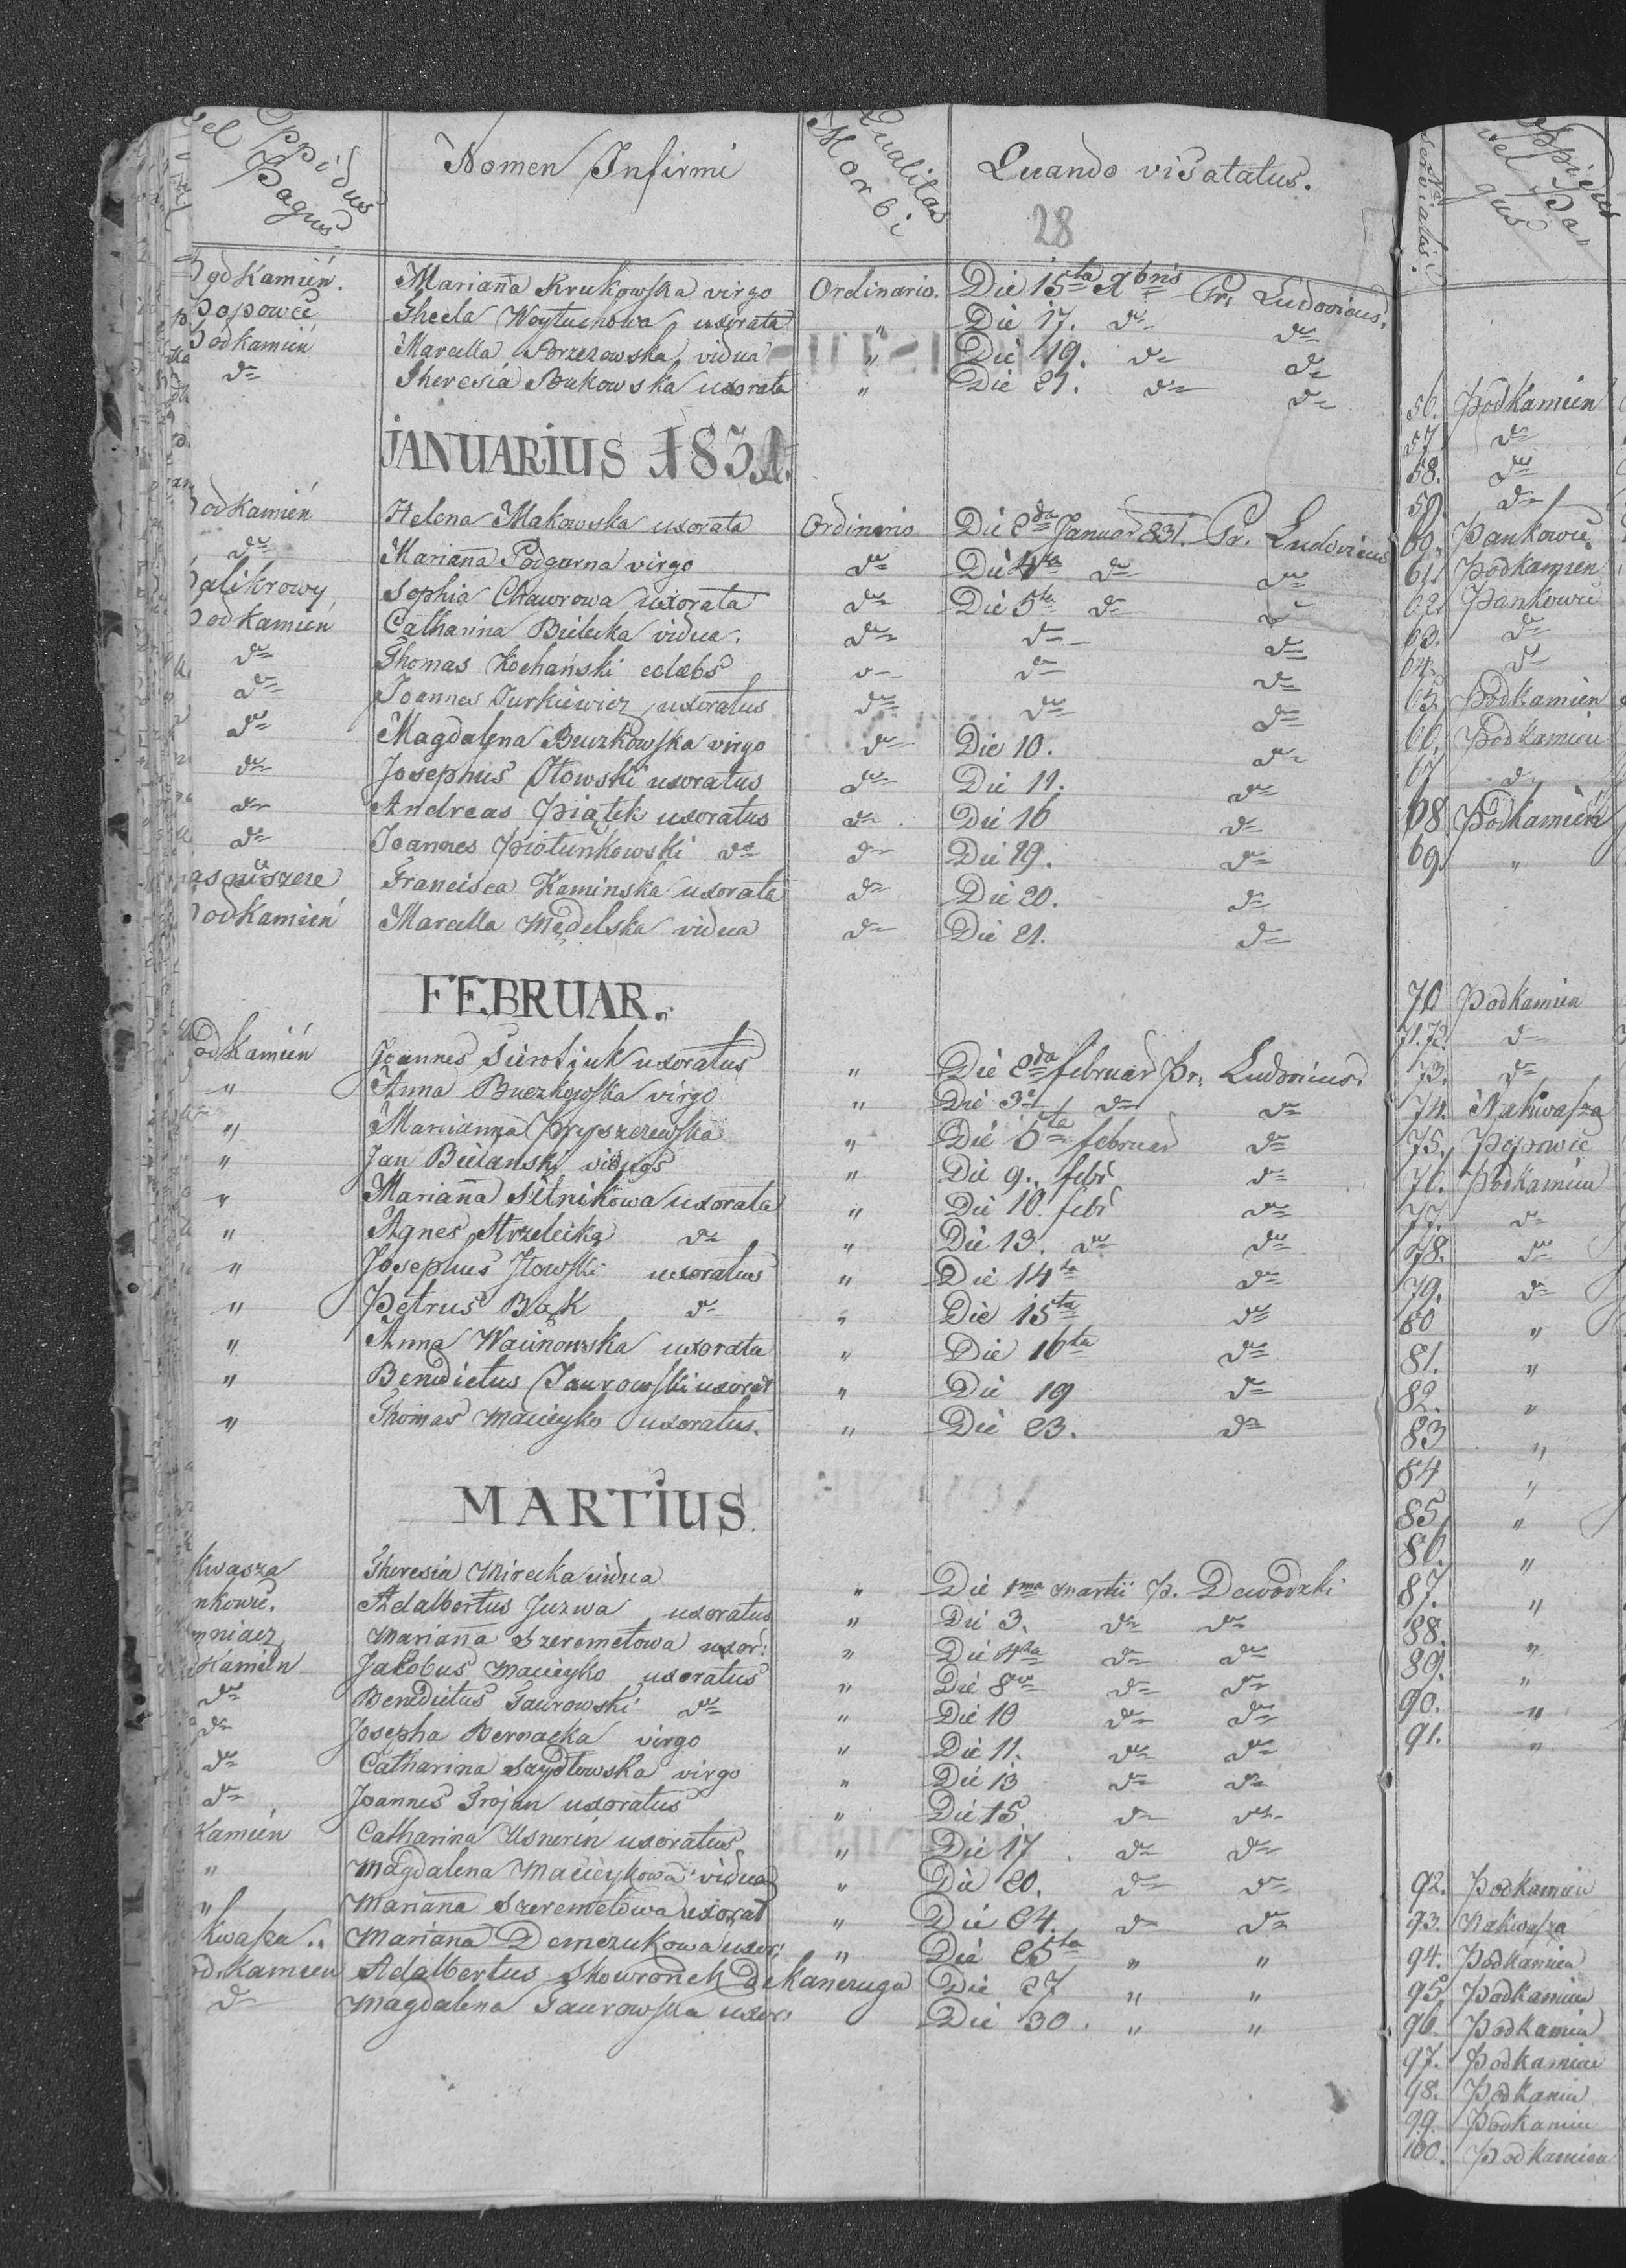 Oppidus vel Pagus | Nomen Infirmi | Qualitas Morbi | Quando visatatus.
28
Podkamień. | Marianna Krukowska virgo | Ordinario. | Die 15ta Xbris Pr. Ludovicus.
Popowce | Thecla Woytuchowa uxorata | " | Die 17. do do
Podkamień | Marcella Brzezowska vidua | " | Die 19. do do
do | Theresia Bukowska uxorata | " | Die 21. do do
JANUARIUS 1831.
Podkamień | Helena Makowska uxorata | Ordinario | Die 2da Januar 831. Pr. Ludovicus
do | Marianna Podgurna virgo | do | Die 4ta do do
Palikrowy | Sophia Chawrowa uxorata | do | Die 5ta do do
Podkamień | Catharina Bielecka vidua. | do | do do
do | Thomas Kochański celebs | do | do do
do | Joannes Jurkiewicz uxoratus | do | do do
do | Magdalena Buczkowska virgo | do | Die 10. do
do | Josephus Iłowski uxoratus | do | Die 11. do
do | Andreas Piątek uxoratus | do | Die 16 do
do | Joannes Piotunkowski do | do | Die 19. do
Francisca Kaminska uxorata | do | Die 20. do
Podkamień | Marcella Mędelska vidua | do | Die 21. do
FEBRUAR.
Podkamień | Joannes Sierotiuk uxoratus | " | Die 2da februar Pr. Ludovicus.
" | Anna Buczkowska virgo | " | Die 3a do do
" | Marianna Pryszczewska | " | Die 6ta februar do
" | Jan Bielanski viduus | " | Die 9. febr do
" | Marianna Sitnikowa uxorata | " | Die 10. febr do
" | Agnes Strzelecka do | " | Die 13. do do
" | Josephus Iłowski uxoratus | " | Die 14ta do
" | Petrus Bąk do | " | Die 15ta do
" | Anna Wacinowska uxorata | " | Die 16ta do
" | Benedictus Taurowski uxorat | " | Die 19 do
" | Thomas Macieyko uxoratus. | " | Die 23. do
MARTIUS.
kwasza | Theresia Mirecka vidua | " | Die 1ma martii P. Dawodzki
nkowce. | Adalbertus Juzwa uxoratus | " | Die 3. do do
mniacz | Marianna Szeremetowa uxor: | " | Die 4ta do do
Kamień | Jakobus Macieyko uxoratus | " | Die 8va do do
do | Benedictus Taurowski do | " | Die 10 do do
do | Josepha Bernacka virgo | " | Die 11. do do
do | Catharina Szydłowska virgo | " | Die 13 do do
do | Joannes Trojan uxoratus | " | Die 15. do do
Kamień | Catharina Usnerin uxoratus | " | Die 17. do do
" | Magdalena Macieykowa vidua | " | Die 20. do do
" | Marianna Szeremetowa uxorat | " | Die 24. do do
kwasza.. | Mariana Demczukowa uxor: | " | Die 25ta " "
odkamień | Adalbertus Skowronek de Kanczuga | Die 27 " "
do | Magdalena Taurowska uxor: | Die 30. " "
Oppidus vel Pagus
56. Podkamien
57. do
58. do
59. do
60. Pankowce
61. Podkamien
62. Pankowce
63. do
64. do
65. Podkamien
66. Podkamien
67 do
68. Podkamień
69. "
70 Podkamien
71.72. do
73. do
74. Nakwasza
75. Popowce
76. Podkamien
77. do
78. do
79. do
80 "
81. "
82. "
83 "
84 "
85. "
86. "
87. "
88. "
89. "
90. "
91. "
92. Podkamien
93. Nakwasza
94. Podkamien
95. Podkamien
96. Podkamien
97. Podkamien
98. Podkamien
99. Podkamien
100. Podkamien